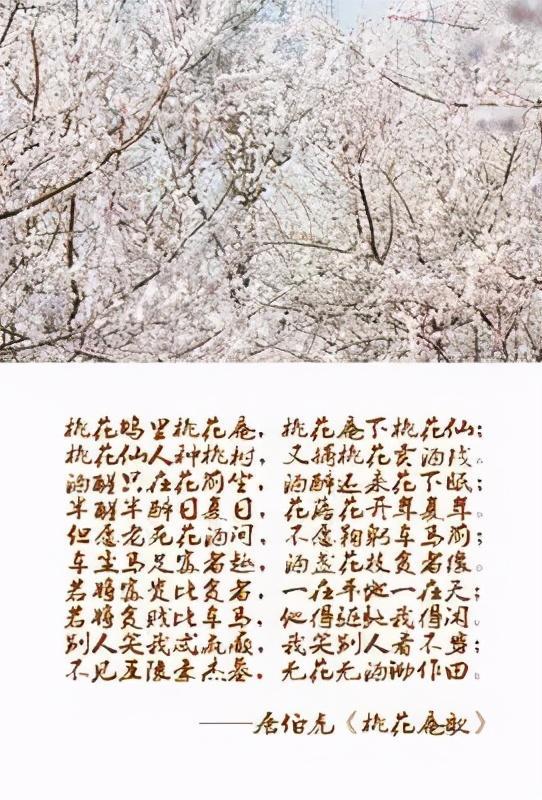 桃花坞里桃花庵，桃花庵下桃花仙；
桃花仙人种桃树，又摘桃花卖酒钱。
酒醒只在花前坐，酒醉还来花下眠；
半醒半醉日复日，花落花开年复年。
但愿老死花酒间，不愿鞠躬车马前；
车尘马足富者趣，酒盏花枝贫者缘。
若将富贵比贫者，一在平地一在天；
若将贫贱比车马，他得驱驰我得闲。
别人笑我忒疯癫，我笑别人看不穿；
不见五陵豪杰墓，无花无酒锄作田。
——唐伯虎《桃花庵歌》